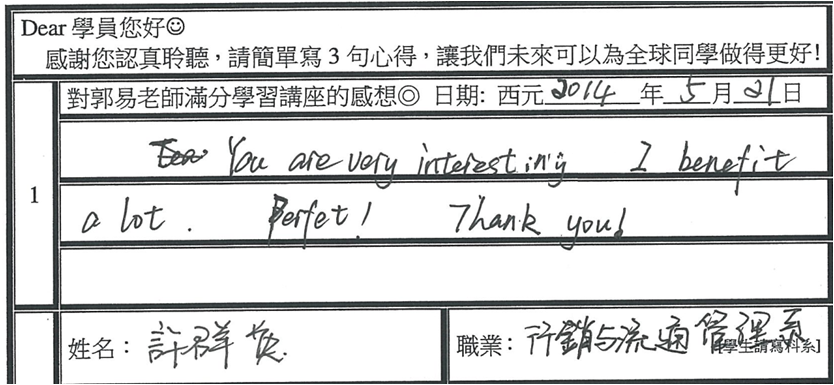 Dear 學員您好☺
感謝您認真聆聽，請簡單寫 3 句心得，讓我們未來可以為全球同學做得更好!
對郭易老師滿分學習講座的感想◎ 日期: 西元2014年5月21日
1
You are very interesting I benefit
a lot. Perfet! Thank you!
姓名：許群
職業：行銷与流通管理系
[學生請寫科系]